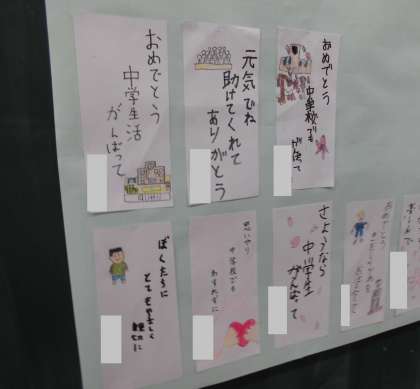 おめでとう
中学生活
がんばって
元気でね
助けてくれて
ありがとう
おめでとう
中学校でも
がんばって
ぼくたちに
とてもやさしく
親切に
思いやり
中学校でも
わすれずに
さようなら
中学生
がんばって
おめでとう